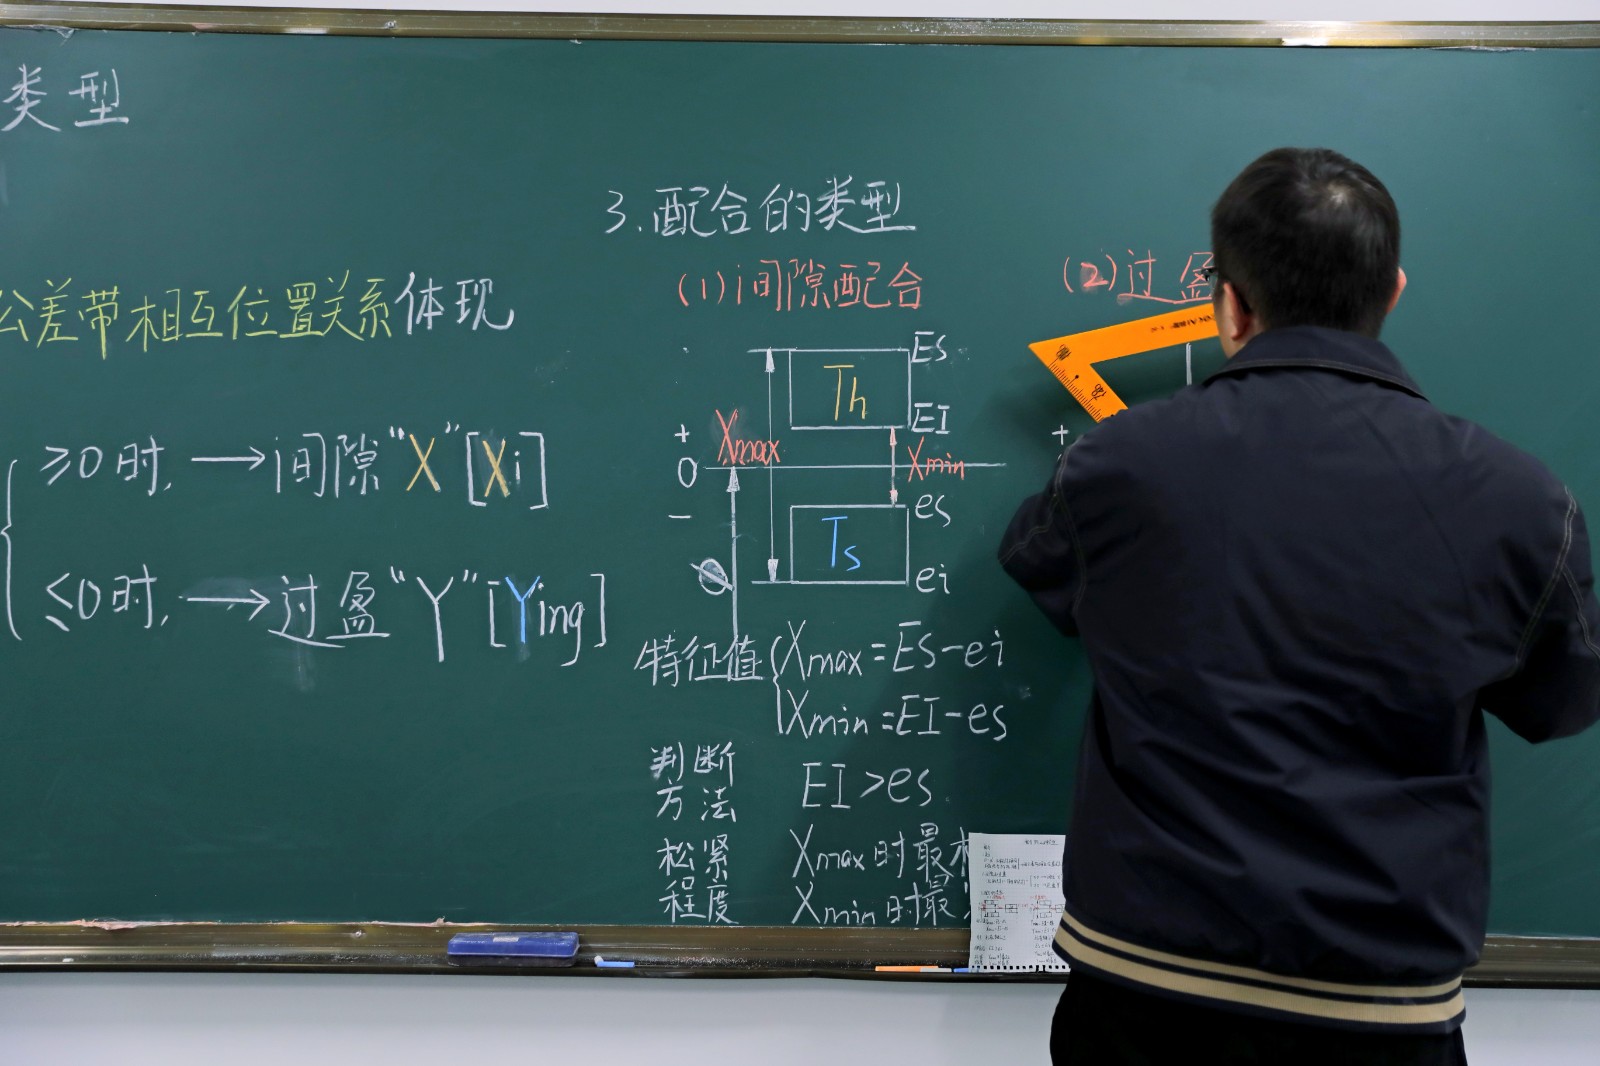 类型
公差带相互位置关系体现
≥0时, → 间隙“X”[Xi]
≤0时, → 过盈“Y”[Ying]
3.配合的类型
(1)间隙配合
ES
Th
EI
+
Xmax
0
Xmin
−
es
Ts
ei
特征值 Xmax=ES-ei
Xmin=EI-es
判断
方法
EI>es
松紧
程度
Xmax时最
Xmin时最
(2)过盈
+